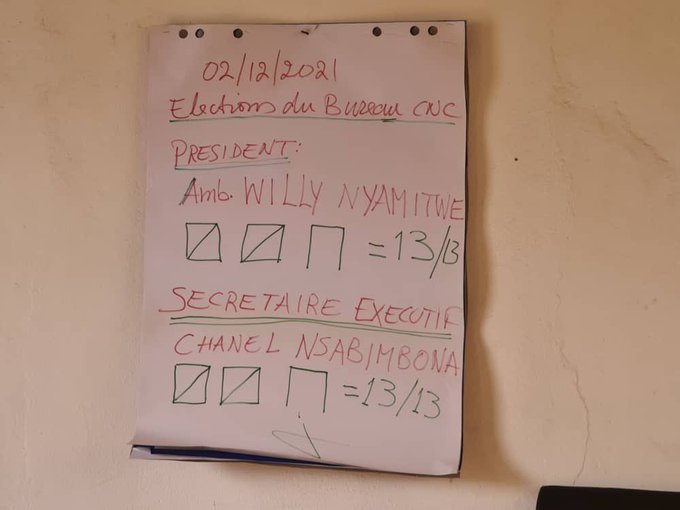 02/12/2021
Elections du Bureau CNC
PRESIDENT:
Amb. WILLY NYAMITWE
= 13/13
SECRETAIRE EXECUTIF
CHANEL NSABIMBONA
= 13/13